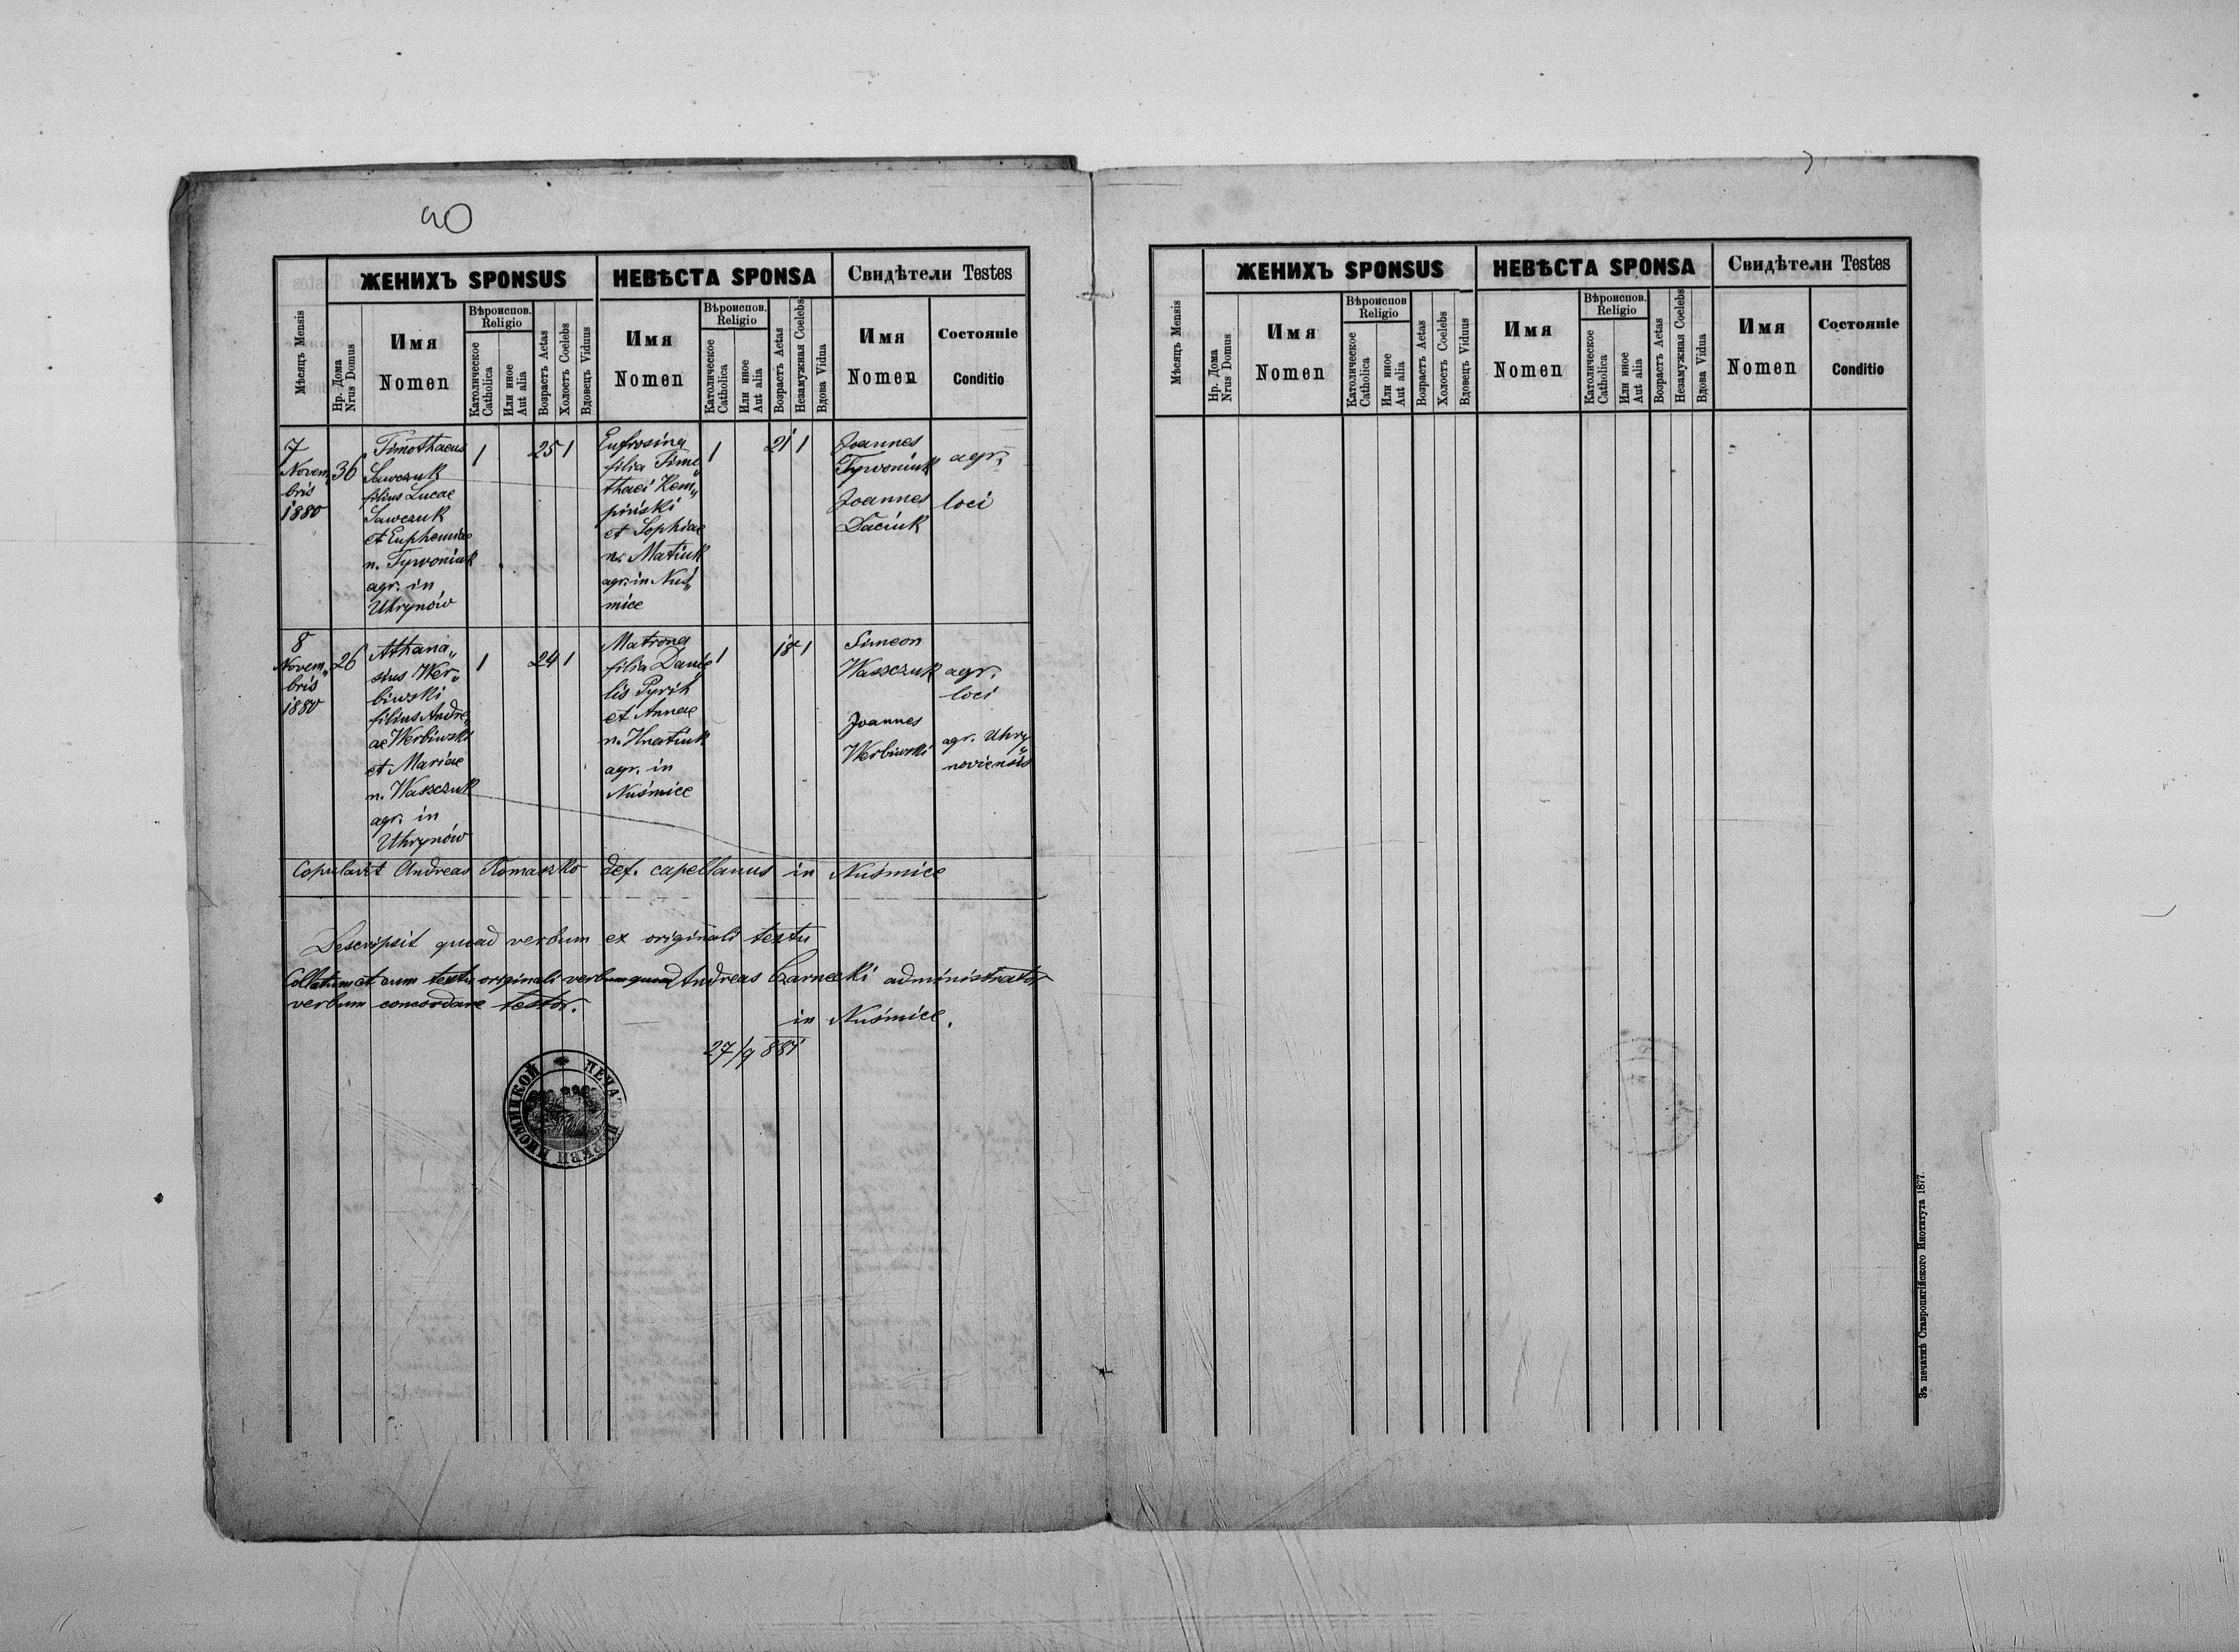 40
Мѣсяцъ Mensis
ЖЕНИХЪ SPONSUS
НЕВѢСТА SPONSA
Свидѣтели Testes
Нр. Дома
Nrus Domus
Имя
Nomen
Вѣроиспов.
Religio
Католическое
Catholica
Или иное
Aut alia
Возрастъ Aetas
Холостъ Coelebs
Вдовецъ Viduus
Имя
Nomen
Вѣроиспов.
Religio
Католическое
Catholica
Или иное
Aut alia
Возрастъ Aetas
Незамужная Coelebs
Вдова Vidua
Имя
Nomen
Состояніе
Conditio
7
Novem„
bris
1880
36
Timothaeus
Sawczuk
filius Lucae
Sawczuk
et Euphemiae
n. Tywoniuk
agr. in
Uhrynów
1
25
1
Eufrosina
filia Timo„
thaei Kem„
piński
et Sophiae
n. Matiuk
agr. in Nuś„
mice
1
21
1
Joannes
Tywoniuk
Joannes
Daciuk
agr.
loci
8
Novem„
bris
1880
26
Athana„
sius Wer„
biwski
filius Andre„
ae Werbiwski
et Mariae
n. Wasczuk
agr. in
Uhrynów
1
24
1
Matrona
filia Danie„
lis Pyrih
et Annae
n. Hnatiuk
agr. in
Nuśmice
1
18
1
Simeon
Wasczuk
agr.
loci
Joannes
Werbiwski
agr. Uhry„
noviensis
Copulavit Andreas Romaszko def. capellanus in Nuśmice
Descripsit quad verbum ex originali textu
Collatum et cum textu originali verbum quad Andreas Czarnecki administrator
verbum concordare testor.
in Nuśmice.
27/9 881
ПЕЧАТЬ ЦЕРКВИ
ЖЕНИХЪ SPONSUS
НЕВѢСТА SPONSA
Свидѣтели Testes
Мѣсяцъ Mensis
Нр. Дома
Nrus Domus
Имя
Nomen
Вѣроиспов.
Religio
Католическое
Catholica
Или иное
Aut alia
Возрастъ Aetas
Холостъ Coelebs
Вдовецъ Viduus
Имя
Nomen
Вѣроиспов.
Religio
Католическое
Catholica
Или иное
Aut alia
Возрастъ Aetas
Незамужная Coelebs
Вдова Vidua
Имя
Nomen
Состояніе
Conditio
Зъ печатнѣ Ставропигійского Института 1877.